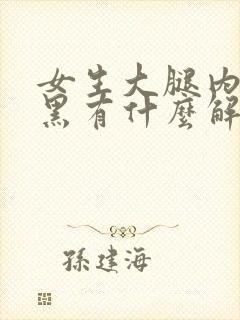 女生大腿内
黑有什麼解
孫建海